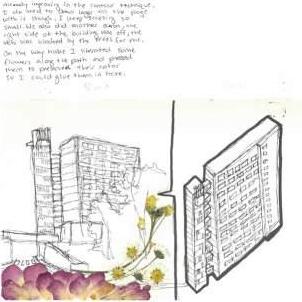 improving in the contour technique.
I do need to draw large on the page
with it though. I keep sketching so
small. We also did another
right side of the building was off, the
was blocked by the trees for me.
On the way home I liberated some
flowers along the path and pressed
them to preserve their color
so I could glue them in here.